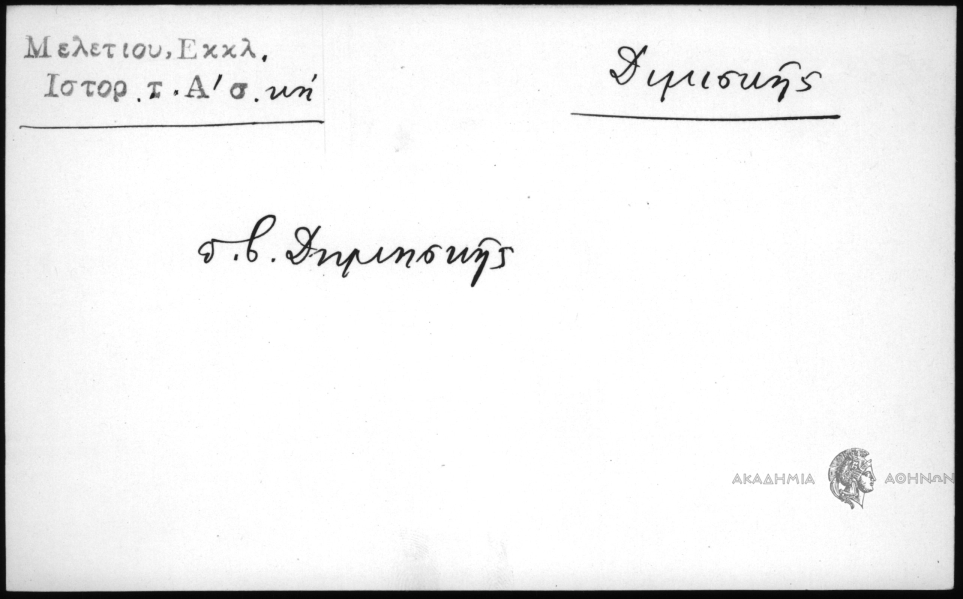 Μελετιου, Εκκλ.
Ιστορ. τ. Α' σ. κή
Διμισκῆς
σ. β. Δημησκῆς
ΑΚΑΔΗΜΙΑ ΑΘΗΝΩΝ